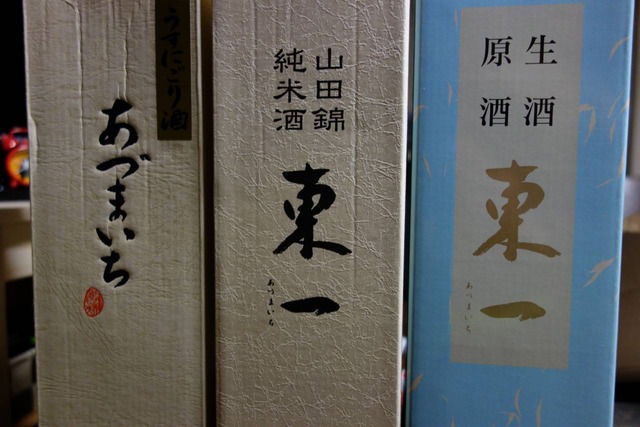 うすにごり酒
あづまいち
山田錦
純米酒
東一
あづまいち
生酒
原酒
東一
あづまいち